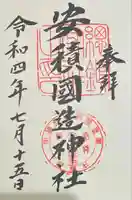 奉拝
安積國造神社
令和四年七月十五日